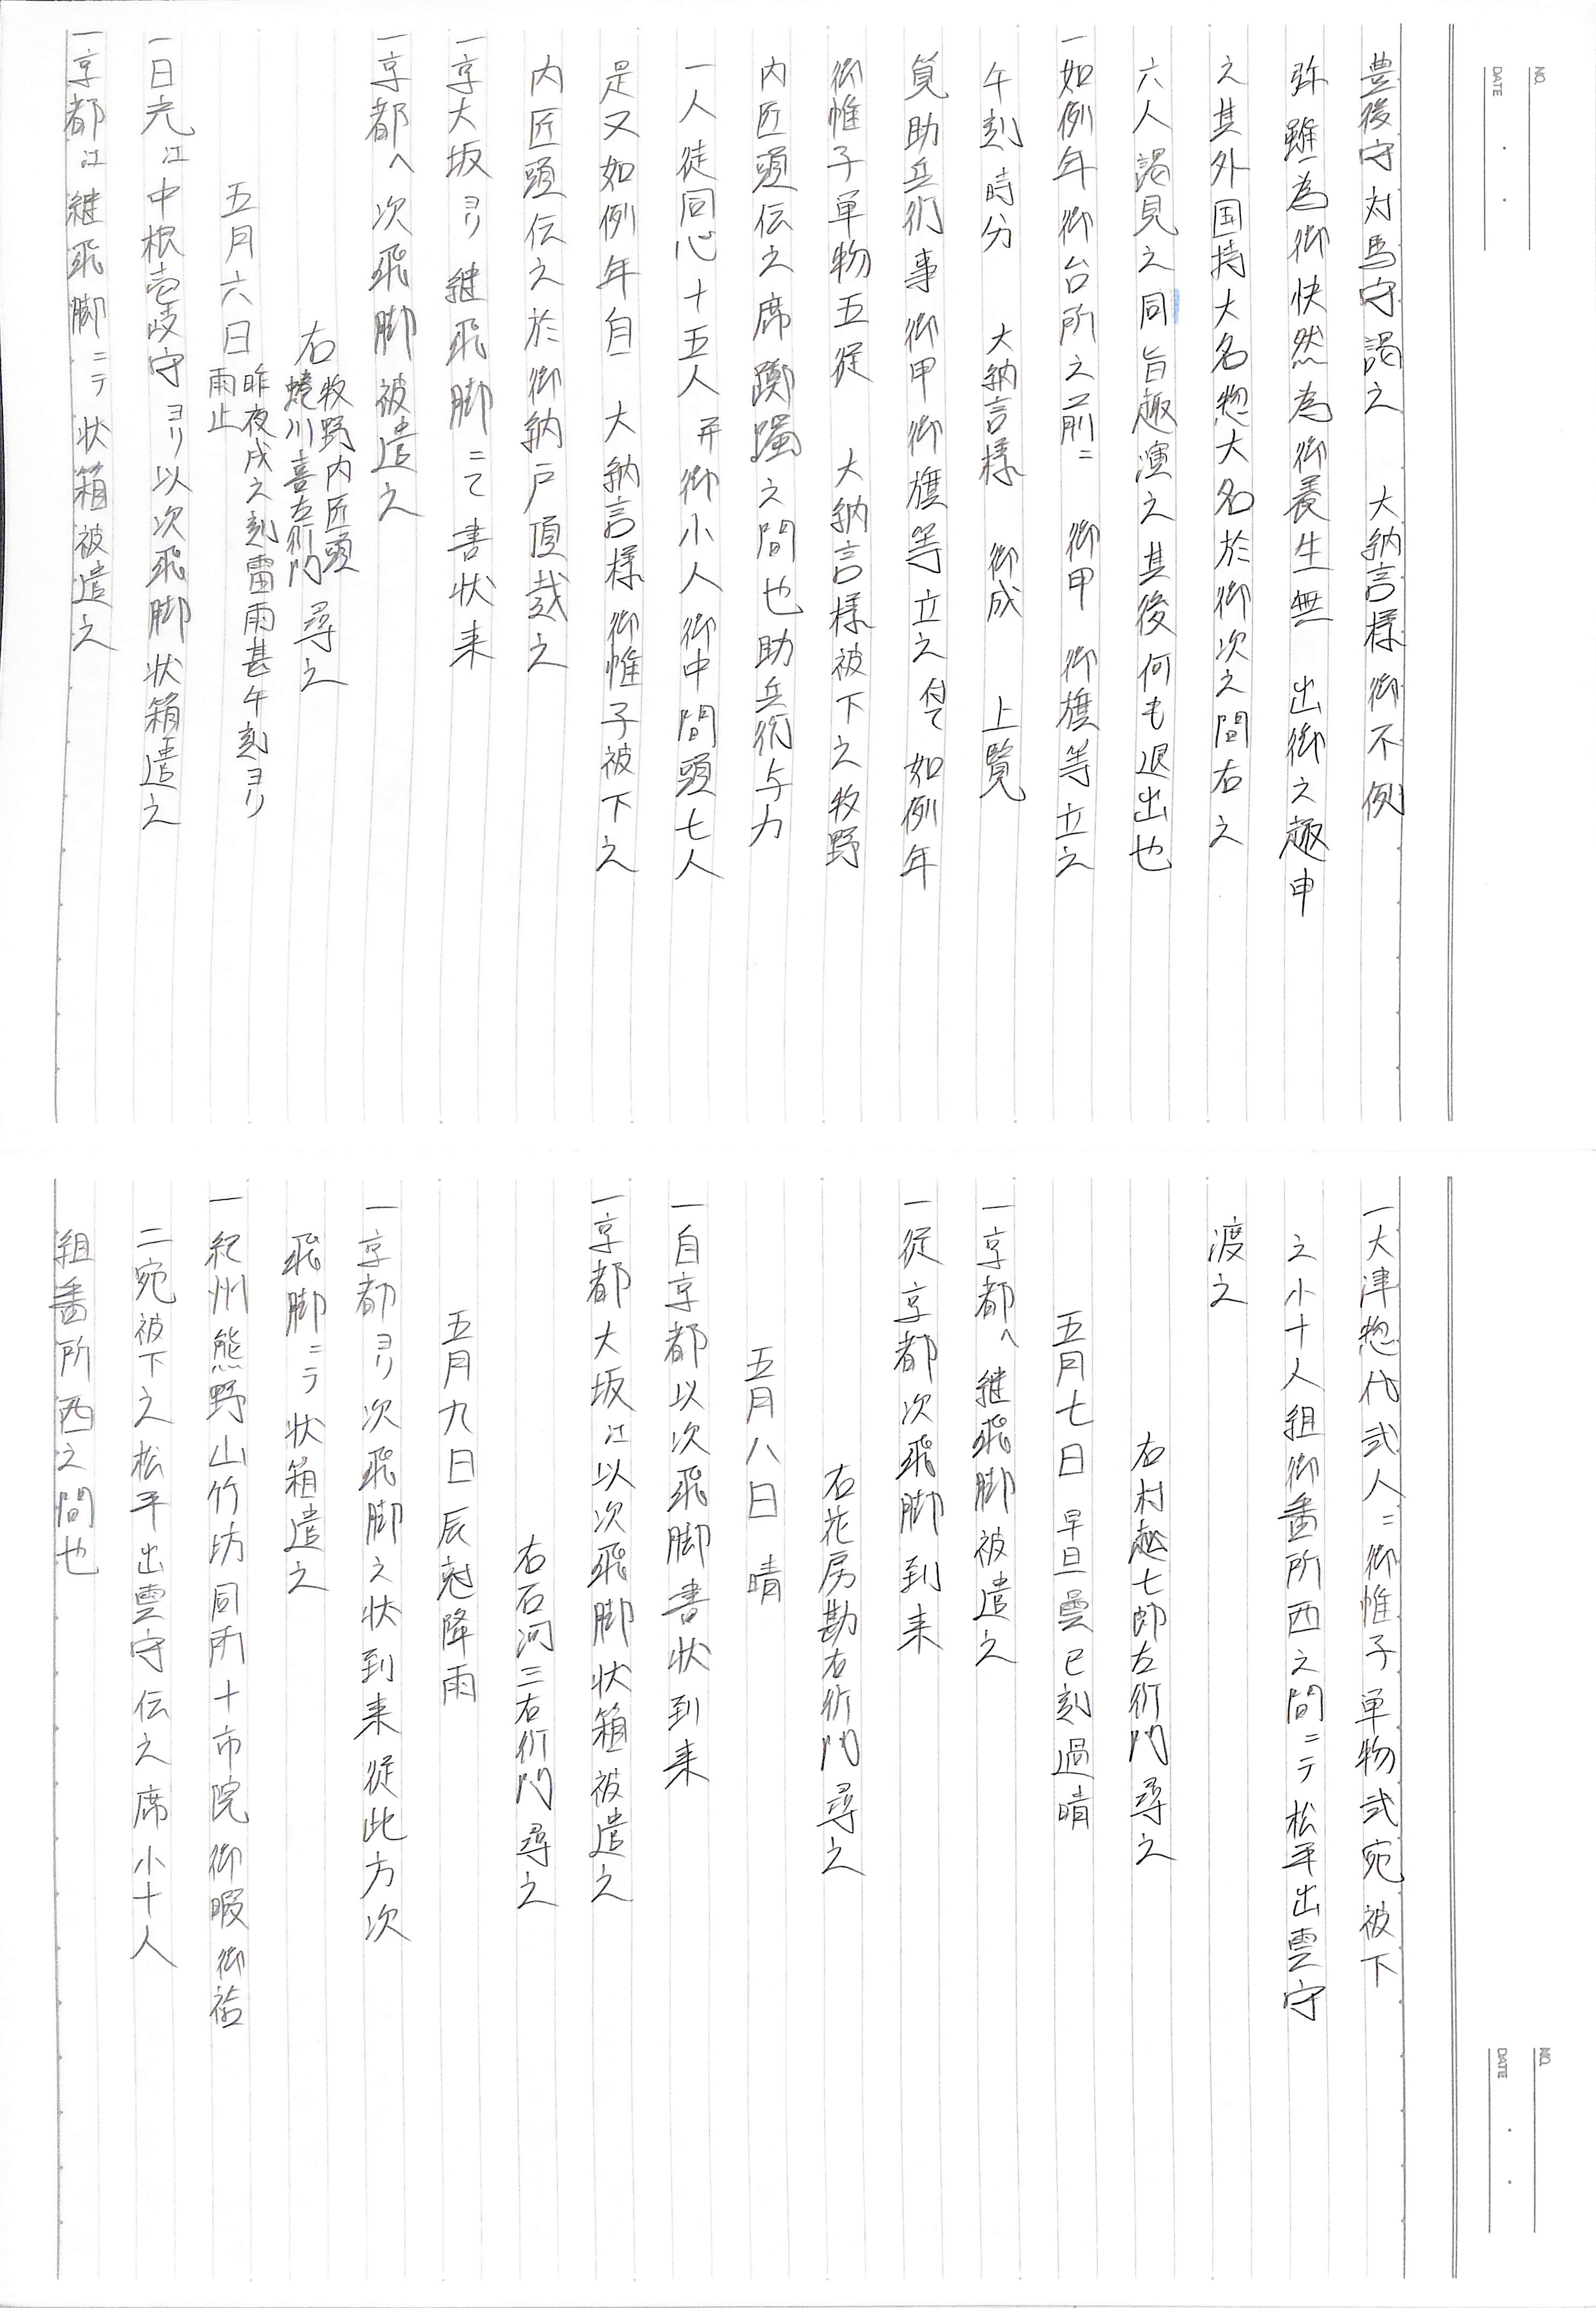 NO.
DATE
豊後守対馬守謁之 大納言様御不例
弥雖為御快然為御養生無 出御之趣申
之其外国持大名惣大名於御次之間右之
六人謁見之同旨趣演之其後何も退出也
一如例年御台所之前ニ 御甲 御旗等立之
午刻時分 大納言様 御成 上覧
筧助兵衛事御甲御旗等立之付て如例年
御帷子単物五従 大納言様被下之牧野
内匠頭伝之席躑躅之間也助兵衛与力
一人徒同心十五人并御小人御中間頭七人
是又如例年自 大納言様御帷子被下之
内匠頭伝之於御納戸頂戴之
一京大坂ヨリ継飛脚ニて書状来
一京都へ次飛脚被遣之
右 牧野内匠頭 蜷川喜左衛門 尋之
五月六日 昨夜戌之刻雷雨甚午刻ヨリ雨止
一日光江中根壱岐守ヨリ以次飛脚状箱遣之
一京都江継飛脚ニテ状箱被遣之
NO.
DATE
一大津惣代弐人ニ御帷子単物弐宛被下
之小十人組御番所西之間ニテ松平出雲守
渡之
右村越七郎左衛門尋之
五月七日 早旦曇巳刻過晴
一京都へ継飛脚被遣之
一従京都次飛脚到来
右花房勘右衛門尋之
五月八日 晴
一自京都以次飛脚書状到来
一京都大坂江以次飛脚状箱被遣之
右石河三右衛門尋之
五月九日辰尅降雨
一京都ヨリ次飛脚之状到来従此方次
飛脚ニテ状箱遣之
一紀州熊野山竹坊同所十市院御暇御袷
二宛被下之松平出雲守伝之席小十人
組番所西之間也